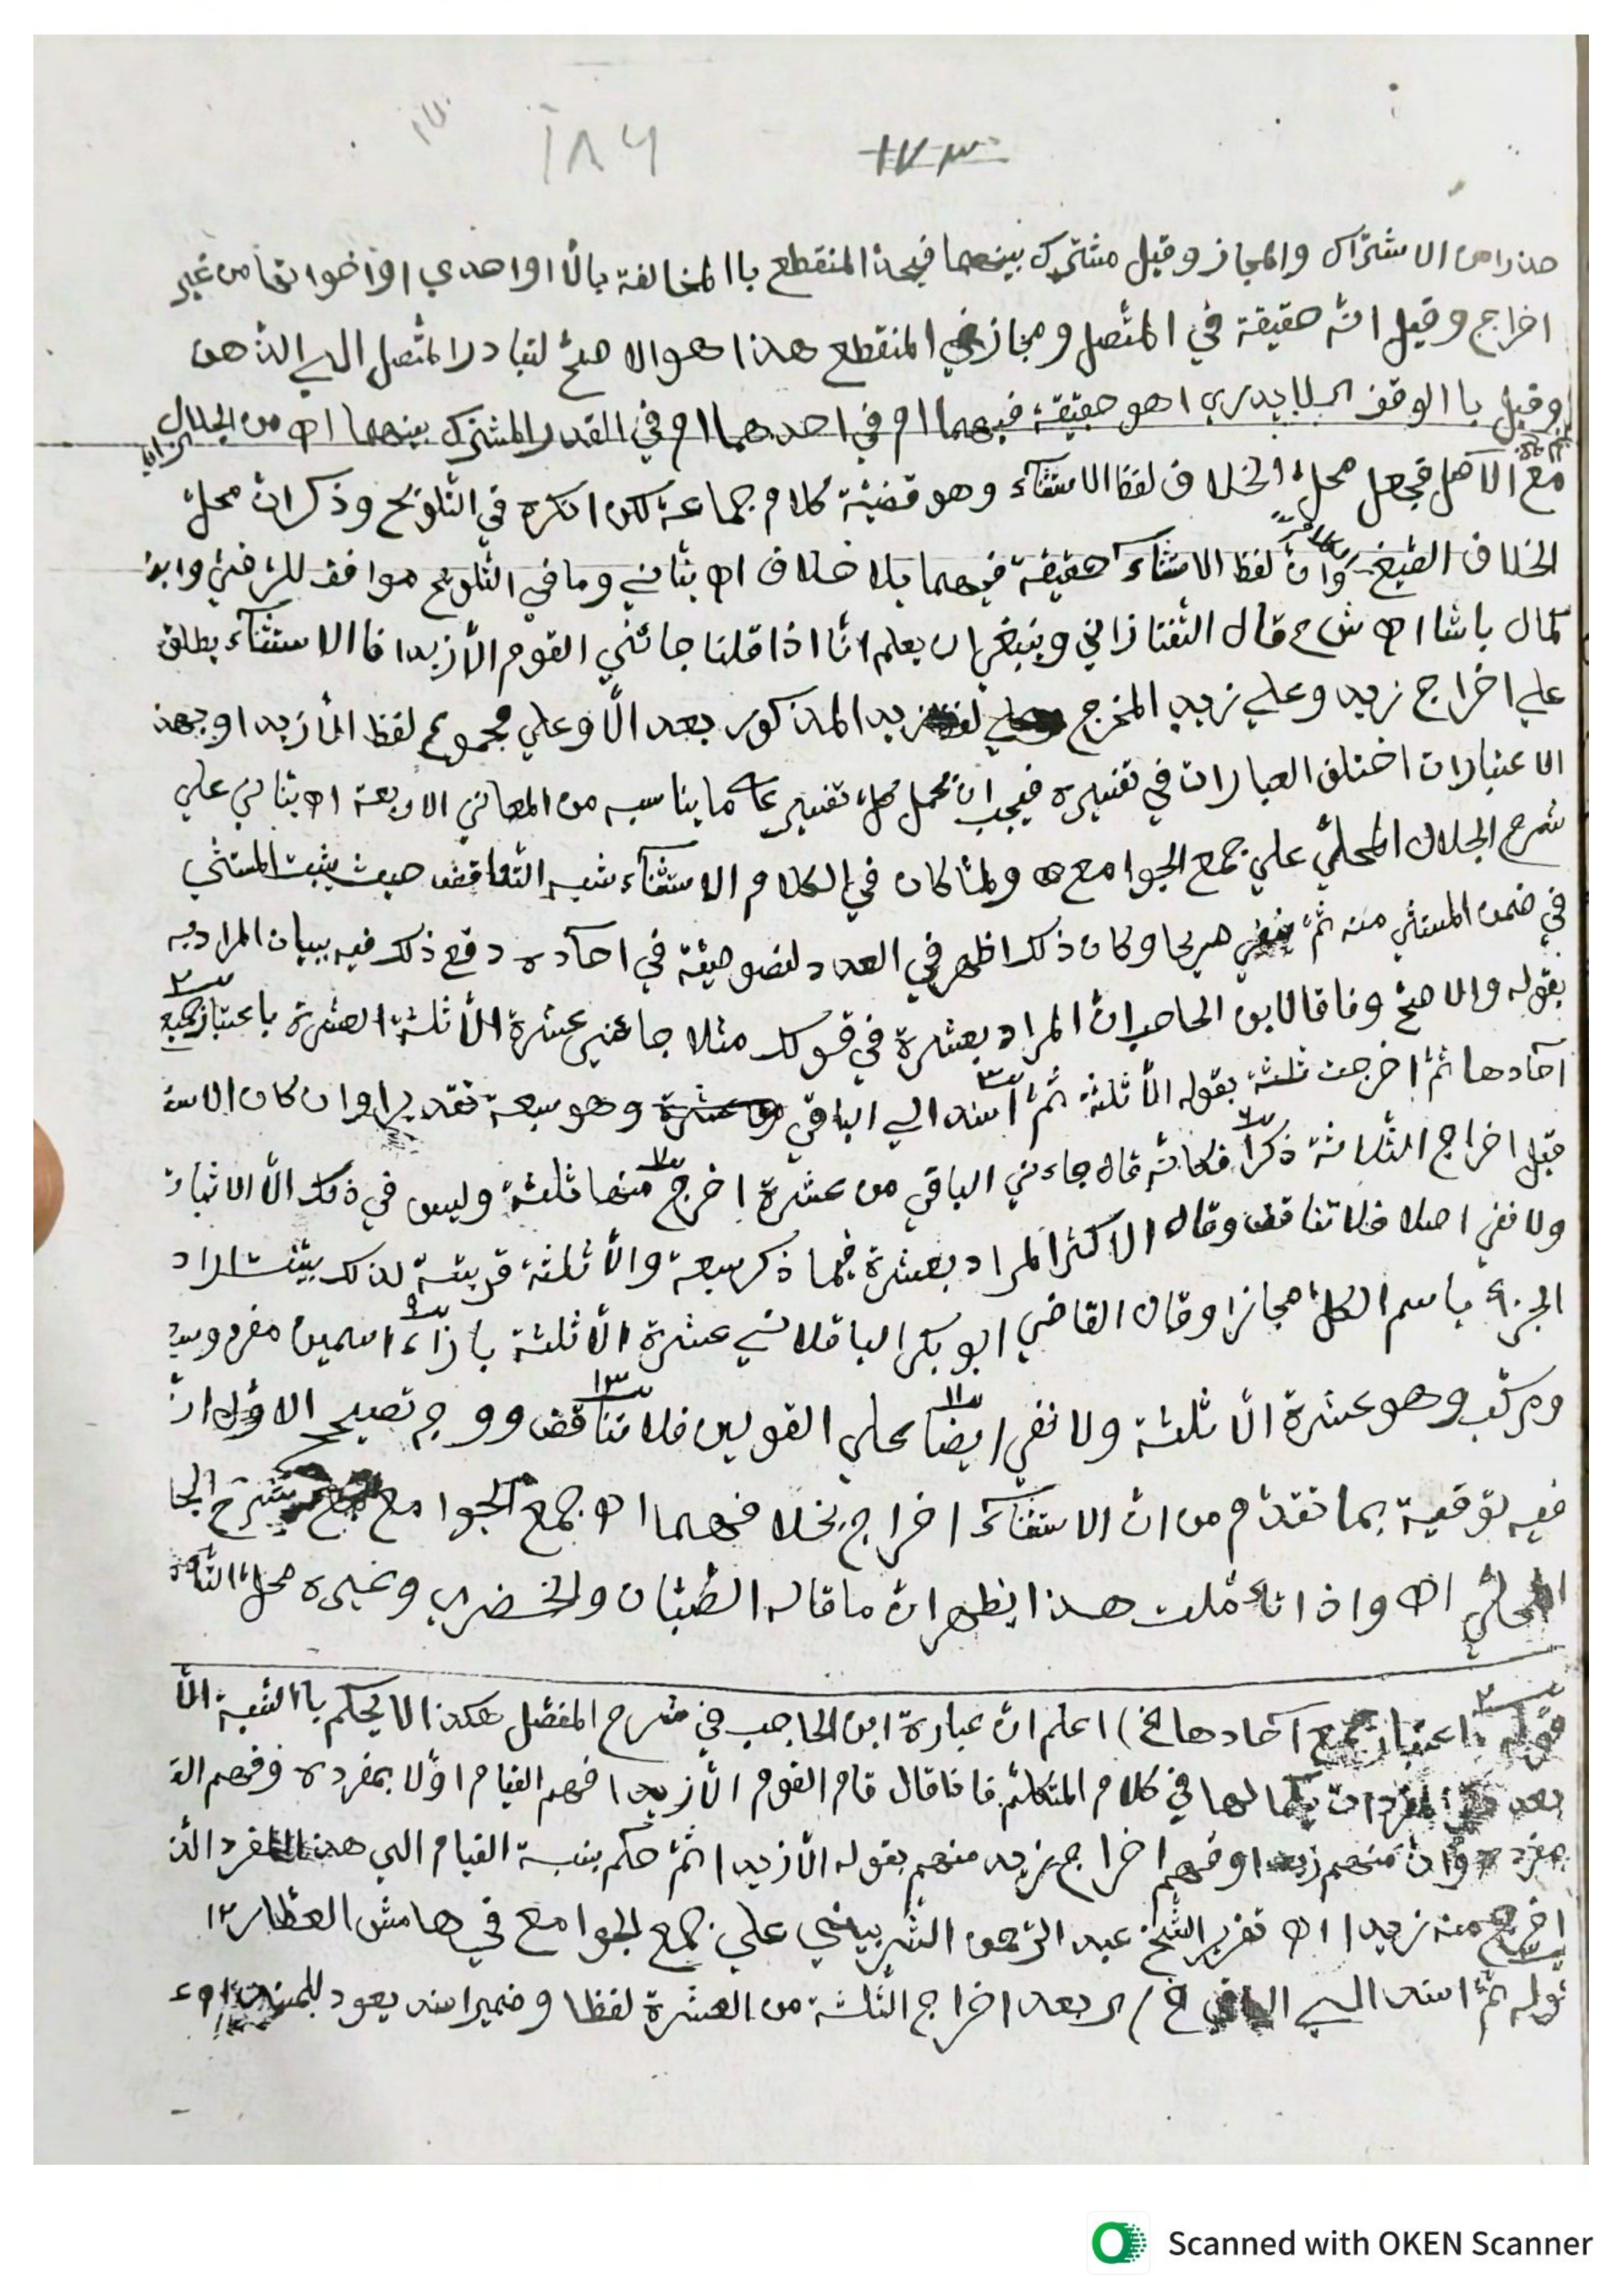 ١٨٦ ١٧٣
حذرا من الاشتراك والمجاز وقيل مشترك بينهما فيحد المنقطع باالمخالفة بالّا او احدي اخواتها من غير
اخراج وقيل انه حقيقة في المتّصل ومجاز في المنقطع هذا هو الاصحّ لتبادر المتّصل الي الذهن
وقيل باالوقف اي لا يدري اهو حقيقة فيهما ام في احدهما ام في القدر المشترك بينهما اه من الجلال
مع الاصل فجعل محلّ الخلاف لفظ الاستثناء وهو قضيّة كلام جماعة لكن انكره في التلويح وذكر انّ محلّ
الخلاف الصّيغ وانّ لفظ الاستثناء حقيقة فيهما بلا خلاف اه بنّاني وما في التلويح موافق للرّضيّ وابن
كمال باشا اه ش م قال التّفتازاني وينبغي ان يعلم انّا اذا قلنا جائني القوم الّا زيدا فاالاستثناء يطلق
علي اخراج زيد وعلي زيد المخرج وعلي لفظ زيد المذكور بعد الّا وعلي مجموع لفظ الّا زيدا وبهذ
الاعتبارات اختلف العبارات في تفسيره فيجب ان يحمل كلّ تفسير علي ما يناسبه من المعاني الاربعة اه بنّاني علي
شرح الجلال المحلّي علي جمع الجوامع اه ولمّا كان في الكلام الاستثناء شبه التّناقض حيث يثبت المستثني
في ضمن المستثني منه ثمّ ينفي صريحا وكان ذلك اظهر في العدد لنصوصيّته في احآده دفع ذلك فيه ببيان المراد به
بقوله والاصحّ وفاقا لابن الحاجب انّ المراد بعشرة في قولك مثلا جاءني عشرة الّا ثلثة العشرة باعتبار جميع
آحادها ثمّ اخرجت ثلثة بقوله الّا ثلثة ثمّ اسند الي الباقي وهو سبعة تقديرا وان كان الاسنا
قبل اخراج الثلاثة ذكرا فكانّه قال جاءني الباقي من عشرة اخرج منها ثلثة وليس في ذلك الّا الاثبات
ولا نفي اصلا فلا تناقض وقال الاكثر المراد بعشرة فيما ذكر سبعة والّا ثلثة قرينة لذلك بيّنت اراد
الجزء باسم الكلّ مجازا وقال القاضي ابو بكر الباقلاني عشرة الّا ثلثة بازاء اسمين مفرد وسبـ
ومركّب وهو عشرة الّا ثلثة ولا نفي ايضا علي القولين فلا تناقض ووجه تصحيح الاول انّ
فيه توفية بما تقدّم من انّ الاستثناء اخراج بخلافهما اه جمع الجوامع مع شرح الجلا
المحلّي اه واذا تأمّلت هذا يظهر انّ ما قاله الصّبّان والخضري وغيره محلّ
قوله باعتبار جميع آحادها الخ) اعلم انّ عبارة ابن الحاجب في شرح المفصّل هكذا لا يحكم باالنسبة الّا
بعد المفردات بكمالها في كلام المتكلّم فاذا قال قام القوم الّا زيدا فهم القيام اوّلا بمفرده وفهم الق
بمفرده وانّ منهم زيدا وفهم اخراج زيد منهم بقوله الّا زيدا ثمّ حكم بنسبة القيام الي هذا المفرد الّذ
اخرج منه زيدا اه تقرير الشّيخ عبد الرّحمن الشّربيني علي جمع الجوامع في هامش العطّار ١٢
قوله ثمّ اسند الي الباقي الخ) اي بعد اخراج الثّلثة من العشرة لفظا وضمير اسند يعود
Scanned with OKEN Scanner